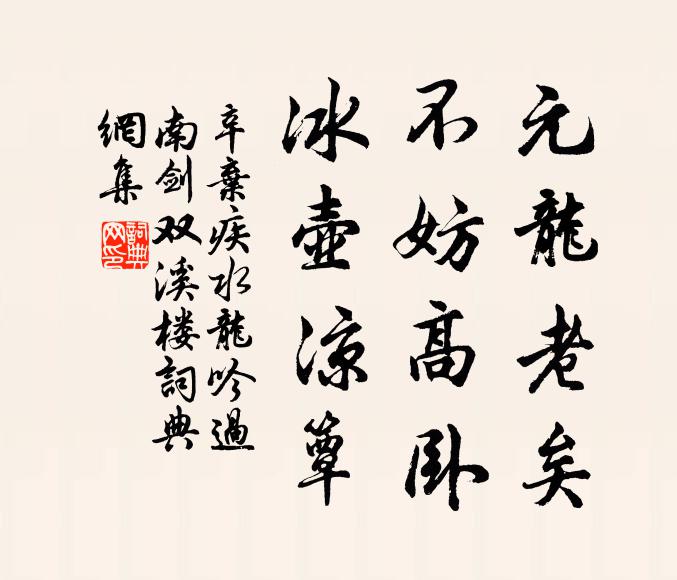 元龍老矣
不妨高卧
冰壺凉簟
辛棄疾水龍吟過
南剑双溪楼詞典
網集
詞典
网印